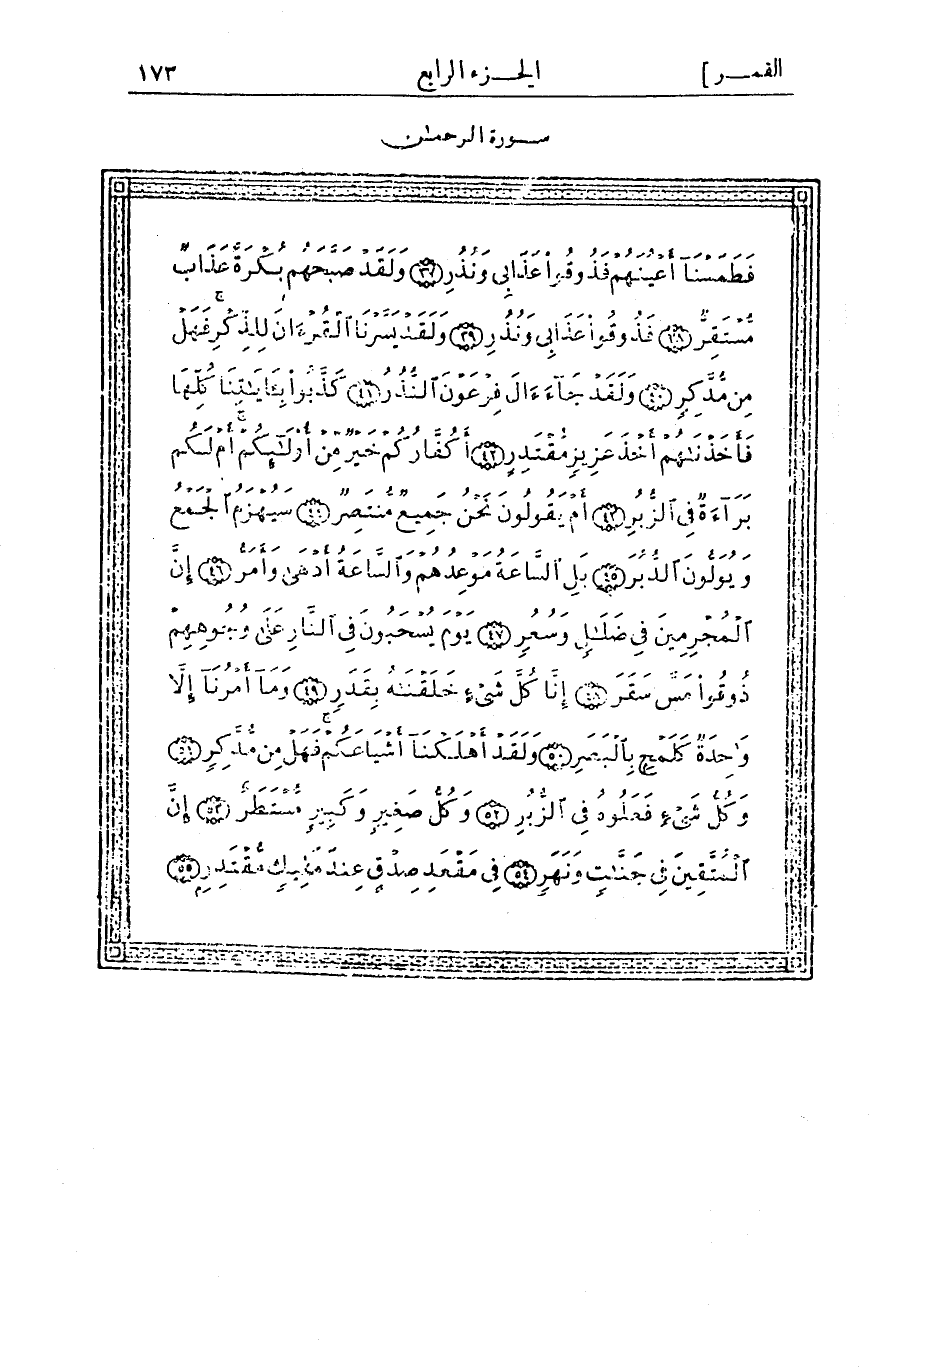 القمـــر ]
الجــزء الرابع
١٧٣
ســورة الرحمـٰن
فَطَمَسْنَآ أَعْيُنَهُمْ فَذُوقُواْ عَذَابِى وَنُذُرِ ﴿٣٧﴾ وَلَقَدْ صَبَّحَهُم بُكْرَةً عَذَابٌ
مُّسْتَقِرٌّ ﴿٣٨﴾ فَذُوقُواْ عَذَابِى وَنُذُرِ ﴿٣٩﴾ وَلَقَدْ يَسَّرْنَا ٱلْقُرْءَانَ لِلذِّكْرِ فَهَلْ
مِن مُّدَّكِرٍ ﴿٤٠﴾ وَلَقَدْ جَآءَ ءَالَ فِرْعَوْنَ ٱلنُّذُرُ ﴿٤١﴾ كَذَّبُواْ بِـَٔايَـٰتِنَا كُلِّهَا
فَأَخَذْنَـٰهُمْ أَخْذَ عَزِيزٍ مُّقْتَدِرٍ ﴿٤٢﴾ أَكُفَّارُكُمْ خَيْرٌ مِّنْ أُوْلَـٰٓئِكُمْ أَمْ لَكُم
بَرَآءَةٌ فِى ٱلزُّبُرِ ﴿٤٣﴾ أَمْ يَقُولُونَ نَحْنُ جَمِيعٌ مُّنتَصِرٌ ﴿٤٤﴾ سَيُهْزَمُ ٱلْجَمْعُ
وَيُوَلُّونَ ٱلدُّبُرَ ﴿٤٥﴾ بَلِ ٱلسَّاعَةُ مَوْعِدُهُمْ وَٱلسَّاعَةُ أَدْهَىٰ وَأَمَرُّ ﴿٤٦﴾ إِنَّ
ٱلْمُجْرِمِينَ فِى ضَلَـٰلٍ وَسُعُرٍ ﴿٤٧﴾ يَوْمَ يُسْحَبُونَ فِى ٱلنَّارِ عَلَىٰ وُجُوهِهِمْ
ذُوقُواْ مَسَّ سَقَرَ ﴿٤٨﴾ إِنَّا كُلَّ شَىْءٍ خَلَقْنَـٰهُ بِقَدَرٍ ﴿٤٩﴾ وَمَآ أَمْرُنَآ إِلَّا
وَٰحِدَةٌ كَلَمْحٍ بِٱلْبَصَرِ ﴿٥٠﴾ وَلَقَدْ أَهْلَكْنَآ أَشْيَاعَكُمْ فَهَلْ مِن مُّدَّكِرٍ ﴿٥١﴾
وَكُلُّ شَىْءٍ فَعَلُوهُ فِى ٱلزُّبُرِ ﴿٥٢﴾ وَكُلُّ صَغِيرٍ وَكَبِيرٍ مُّسْتَطَرٌ ﴿٥٣﴾ إِنَّ
ٱلْمُتَّقِينَ فِى جَنَّـٰتٍ وَنَهَرٍ ﴿٥٤﴾ فِى مَقْعَدِ صِدْقٍ عِندَ مَلِيكٍ مُّقْتَدِرٍۭ ﴿٥٥﴾